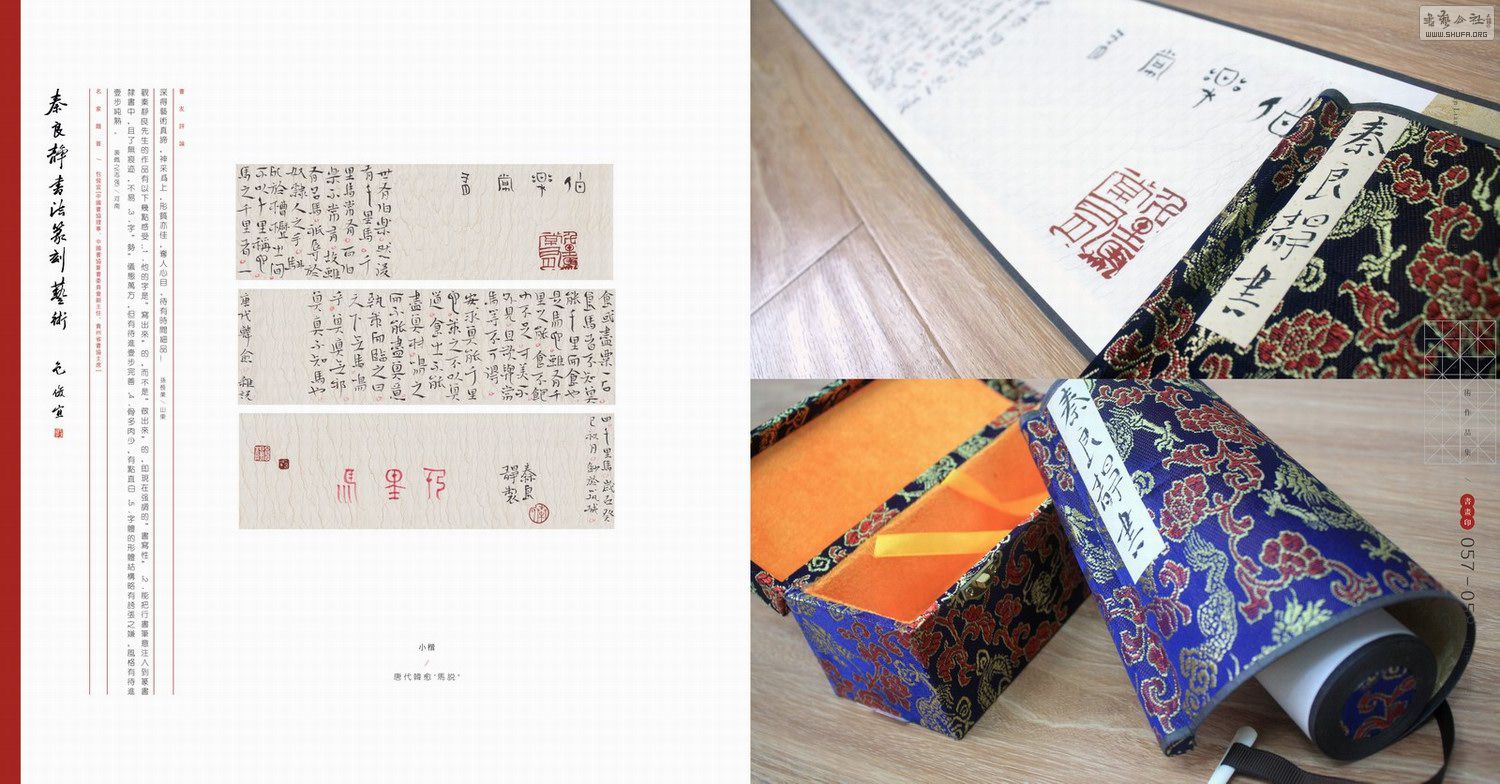 書友評論
深得藝術真諦，神采爲上，形質亦佳，奪人心目，待有時間細品—
觀秦靜良先生的作品有以下幾點感受：1.他的字是"寫出來"的，而不是"做出來"的，即現在强調的"書寫性"。 2.能把行書筆意注入到篆書
隸書中，且了無痕迹，不易 3.字"勢"儀態萬方，但有待進壹步完善 4.骨多肉少，有點直白 5.字體的形體結構略有誇張之嫌，風格有待進
壹步純熟。
名家題簽 \ 包俊宜(中國書協理事、中國書協篆書委員會副主任、貴州省書協主席)
秦良靜書法篆刻藝術 包俊宜
伯樂
世有伯樂然後
有千里馬千
里馬常有而伯
樂不常有故雖
有名馬祗辱於
奴隸人之手駢
死於槽櫪之間
不以千里稱也
馬之千里者一
食或盡粟一石
食馬者不知其
能千里而食也
是馬也雖有千
里之能食不飽
力不足才美不
外見且欲與常
馬等不可得
安求其能千里
也策之不以其
道食之不能
盡其材鳴之
而不能盡其意
執策而臨之曰
天下無馬嗚
呼其真無馬邪
其真不知馬也
唐代韓愈雜説
四千里馬歲在癸
巳秋月
秦良
靜製
千里馬
小楷
/
唐代韓愈"馬説"
伯樂
秦良靜書
秦良靜書
WWW.SHUFA.ORG
術作品集
書畫印
057-05